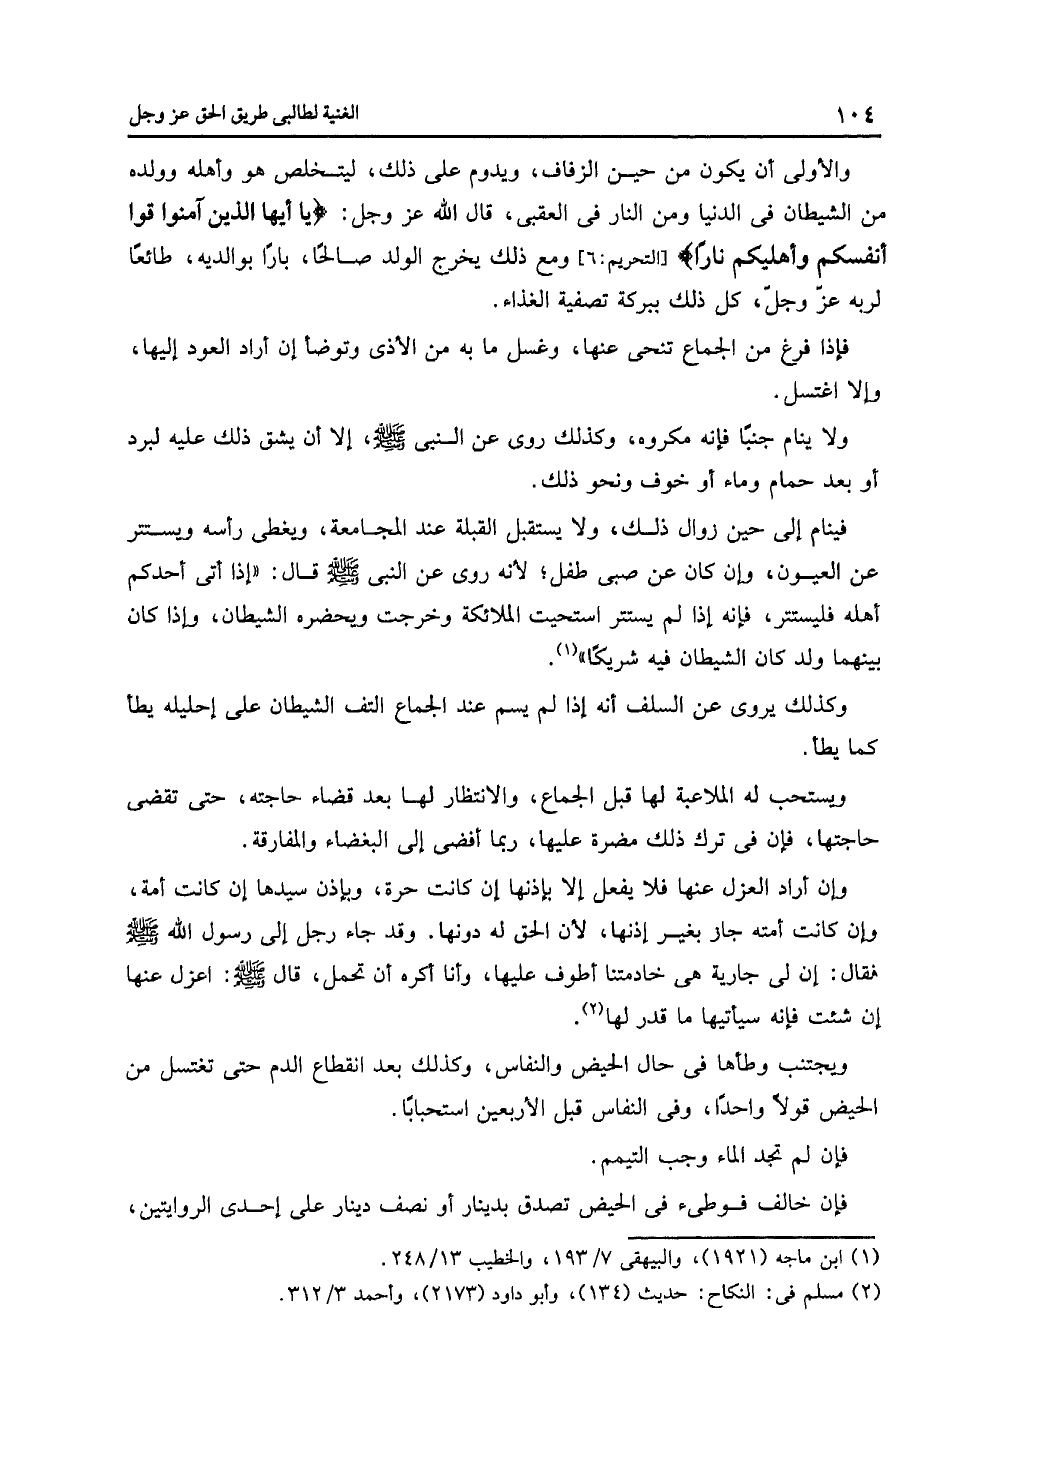 ١٠٤ الغنية لطالبى طريق الحق عز وجل
والأولى أن يكون من حيـن الزفاف، ويدوم على ذلك، ليتـخلص هو وأهله وولده
من الشيطان فى الدنيا ومن النار فى العقبى، قال الله عز وجل: ﴿يا أيها الذين آمنوا قوا
أنفسكم وأهليكم نارًا﴾ [التحريم:٦] ومع ذلك يخرج الولد صـالحًا، بارًا بوالديه، طائعًا
لربه عزّ وجلّ، كل ذلك ببركة تصفية الغذاء.
فإذا فرغ من الجماع تنحى عنها، وغسل ما به من الأذى وتوضأ إن أراد العود إليها،
وإلا اغتسل.
ولا ينام جنبًا فإنه مكروه، وكذلك روى عن الـنبى ﷺ، إلا أن يشق ذلك عليه لبرد
أو بعد حمام وماء أو خوف ونحو ذلك.
فينام إلى حين زوال ذلـك، ولا يستقبل القبلة عند المجـامعة، ويغطى رأسه ويسـتتر
عن العيـون، وإن كان عن صبى طفل؛ لأنه روى عن النبى ﷺ قـال: «إذا أتى أحدكم
أهله فليستتر، فإنه إذا لم يستتر استحيت الملائكة وخرجت ويحضره الشيطان، وإذا كان
بينهما ولد كان الشيطان فيه شريكًا»(١).
وكذلك يروى عن السلف أنه إذا لم يسم عند الجماع التف الشيطان على إحليله يطأ
كما يطأ.
ويستحب له الملاعبة لها قبل الجماع، والانتظار لهـا بعد قضاء حاجته، حتى تقضى
حاجتها، فإن فى ترك ذلك مضرة عليها، ربما أفضى إلى البغضاء والمفارقة.
وإن أراد العزل عنها فلا يفعل إلا بإذنها إن كانت حرة، وبإذن سيدها إن كانت أمة،
وإن كانت أمته جاز بغيـر إذنها، لأن الحق له دونها. وقد جاء رجل إلى رسول الله ﷺ
فقال: إن لى جارية هى خادمتنا أطوف عليها، وأنا أكره أن تحمل، قال ﷺ: اعزل عنها
إن شئت فإنه سيأتيها ما قدر لها(٢).
ويجتنب وطأها فى حال الحيض والنفاس، وكذلك بعد انقطاع الدم حتى تغتسل من
الحيض قولاً واحدًا، وفى النفاس قبل الأربعين استحبابًا.
فإن لم تجد الماء وجب التيمم.
فإن خالف فـوطىء فى الحيض تصدق بدينار أو نصف دينار على إحـدى الروايتين،
(١) ابن ماجه (١٩٢١)، والبيهقى ٧/ ١٩٣، والخطيب ١٣/ ٢٤٨.
(٢) مسلم فى: النكاح: حديث (١٣٤)، وأبو داود (٢١٧٣)، وأحمد ٣/ ٣١٢.